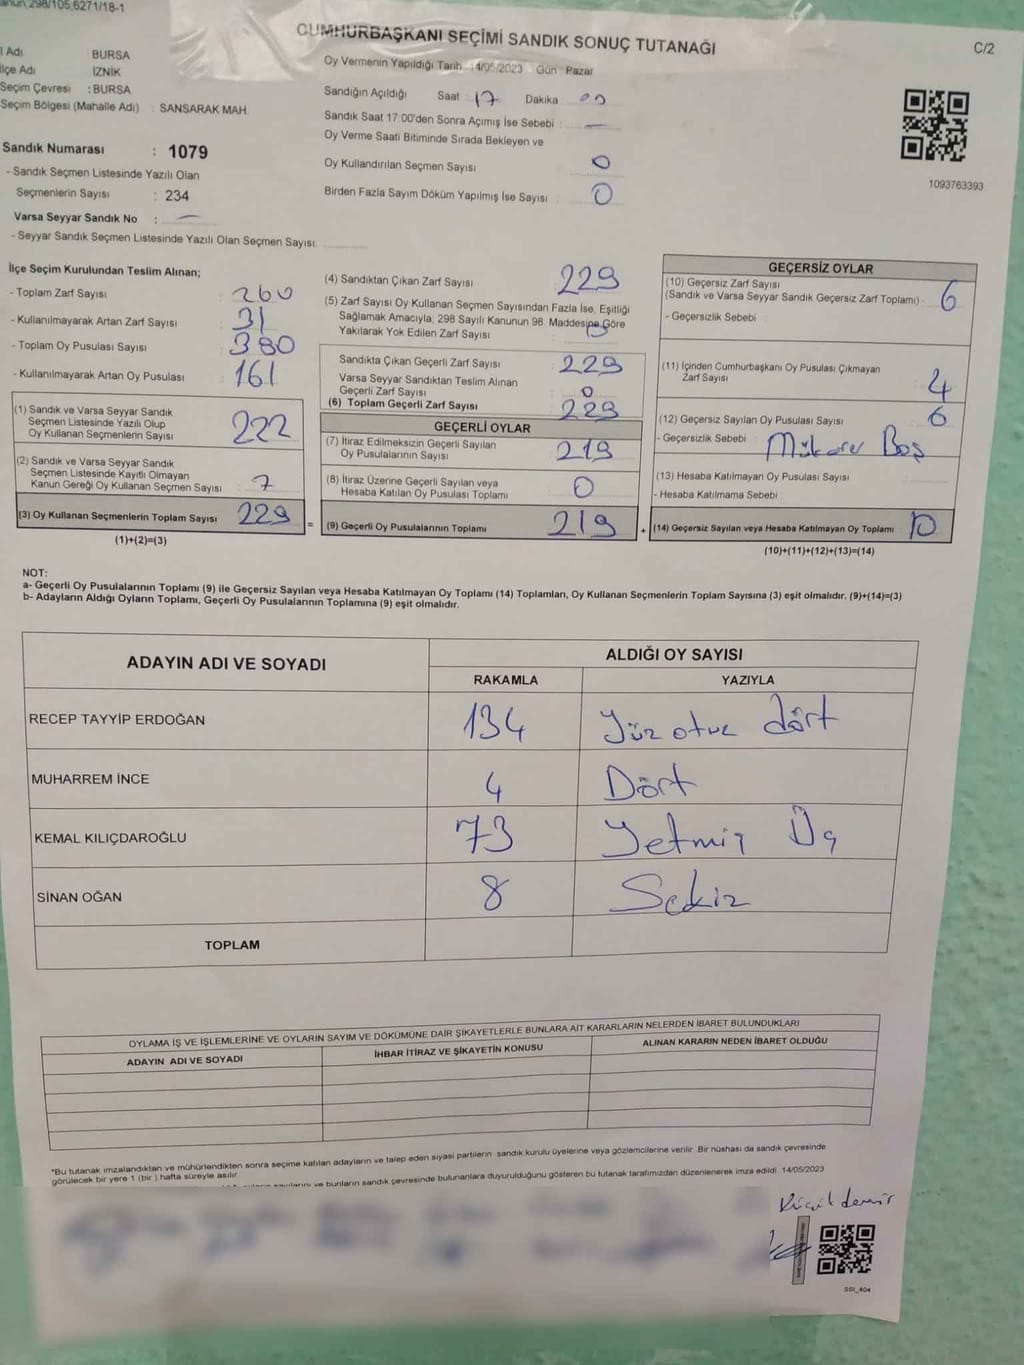 298/105,6271/18-1
CUMHURBAŞKANI SEÇİMİ SANDIK SONUÇ TUTANAĞI
C/2
Adı BURSA
İlçe Adı İZNİK
Seçim Çevresi : BURSA
Seçim Bölgesi (Mahalle Adı) : SANSARAK MAH.
Sandık Numarası : 1079
- Sandık Seçmen Listesinde Yazılı Olan
Seçmenlerin Sayısı : 234
Varsa Seyyar Sandık No : —
- Seyyar Sandık Seçmen Listesinde Yazılı Olan Seçmen Sayısı:
Oy Vermenin Yapıldığı Tarih 14/05/2023 Gün Pazar
Sandığın Açıldığı Saat 17 Dakika 00
Sandık Saat 17:00'den Sonra Açımış İse Sebebi : —
Oy Verme Saati Bitiminde Sırada Bekleyen ve
Oy Kullandırılan Seçmen Sayısı 0
Birden Fazla Sayım Döküm Yapılmış İse Sayısı 0
1093763393
İlçe Seçim Kurulundan Teslim Alınan;
- Toplam Zarf Sayısı : 260
- Kullanılmayarak Artan Zarf Sayısı : 31
- Toplam Oy Pusulası Sayısı : 380
- Kullanılmayarak Artan Oy Pusulası : 161
(1) Sandık ve Varsa Seyyar Sandık
Seçmen Listesinde Yazılı Olup
Oy Kullanan Seçmenlerin Sayısı 222
(2) Sandık ve Varsa Seyyar Sandık
Seçmen Listesinde Kayıtlı Olmayan
Kanun Gereği Oy Kullanan Seçmen Sayısı 7
(3) Oy Kullanan Seçmenlerin Toplam Sayısı 229
(1)+(2)=(3)
(4) Sandıktan Çıkan Zarf Sayısı 229
(5) Zarf Sayısı Oy Kullanan Seçmen Sayısından Fazla İse, Eşitliği
Sağlamak Amacıyla; 298 Sayılı Kanunun 98. Maddesine Göre
Yakılarak Yok Edilen Zarf Sayısı
Sandıkta Çıkan Geçerli Zarf Sayısı 229
Varsa Seyyar Sandıktan Teslim Alınan
Geçerli Zarf Sayısı : 0
(6) Toplam Geçerli Zarf Sayısı 229
GEÇERLİ OYLAR
(7) İtiraz Edilmeksizin Geçerli Sayılan
Oy Pusulalarının Sayısı 219
(8) İtiraz Üzerine Geçerli Sayılan veya
Hesaba Katılan Oy Pusulası Toplamı 0
= (9) Geçerli Oy Pusulalarının Toplamı 219
GEÇERSİZ OYLAR
(10) Geçersiz Zarf Sayısı
(Sandık ve Varsa Seyyar Sandık Geçersiz Zarf Toplamı) : 6
- Geçersizlik Sebebi :
(11) İçinden Cumhurbaşkanı Oy Pusulası Çıkmayan
Zarf Sayısı 4
(12) Geçersiz Sayılan Oy Pusulası Sayısı 6
- Geçersizlik Sebebi : Boş
(13) Hesaba Katılmayan Oy Pusulası Sayısı
- Hesaba Katılmama Sebebi
+ (14) Geçersiz Sayılan veya Hesaba Katılmayan Oy Toplamı 10
(10)+(11)+(12)+(13)=(14)
NOT:
a- Geçerli Oy Pusulalarının Toplamı (9) ile Geçersiz Sayılan veya Hesaba Katılmayan Oy Toplamı (14) Toplamları, Oy Kullanan Seçmenlerin Toplam Sayısına (3) eşit olmalıdır. (9)+(14)=(3)
b- Adayların Aldığı Oyların Toplamı, Geçerli Oy Pusulalarının Toplamına (9) eşit olmalıdır.
ADAYIN ADI VE SOYADI ALDIĞI OY SAYISI
RAKAMLA YAZIYLA
RECEP TAYYİP ERDOĞAN 134 Yüz otuz dört
MUHARREM İNCE 4 Dört
KEMAL KILIÇDAROĞLU 73 Yetmiş Üç
SİNAN OĞAN 8 Sekiz
TOPLAM
OYLAMA İŞ VE İŞLEMLERİNE VE OYLARIN SAYIM VE DÖKÜMÜNE DAİR ŞİKAYETLERLE BUNLARA AİT KARARLARIN NELERDEN İBARET BULUNDUKLARI
ADAYIN ADI VE SOYADI İHBAR İTİRAZ VE ŞİKAYETİN KONUSU ALINAN KARARIN NEDEN İBARET OLDUĞU
*Bu tutanak imzalandıktan ve mühürlendikten sonra seçime katılan adayların ve talep eden siyasi partilerin sandık kurulu üyelerine veya gözlemcilerine verilir. Bir nüshası da sandık çevresinde
görülecek bir yere 1 (bir) hafta süreyle asılır.
ve bunların sandık çevresinde bulunanlara duyurulduğunu gösteren bu tutanak tarafımızdan düzenlenerek imza edildi. 14/05/2023
SSI_404